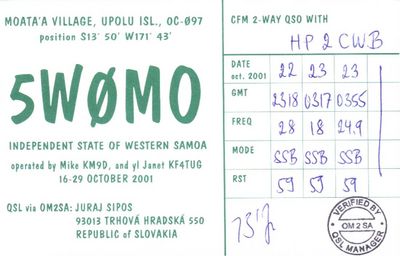 MOATA'A VILLAGE, UPOLU ISL., OC-Ø97
position S13° 50' W171° 43'
5WØMO
INDEPENDENT STATE OF WESTERN SAMOA
operated by Mike KM9D, and yl Janet KF4TUG
16-29 OCTOBER 2001
QSL via OM2SA: JURAJ SIPOS
93013 TRHOVÁ HRADSKÁ 550
REPUBLIC of SLOVAKIA
CFM 2-WAY QSO WITH
HP2CWB
DATE oct. 2001 22 23 23
GMT 2318 0317 0355
FREQ 28 18 24.9
MODE SSB SSB SSB
RST 59 59 59
73'
VERIFIED BY
OM2SA
QSL MANAGER